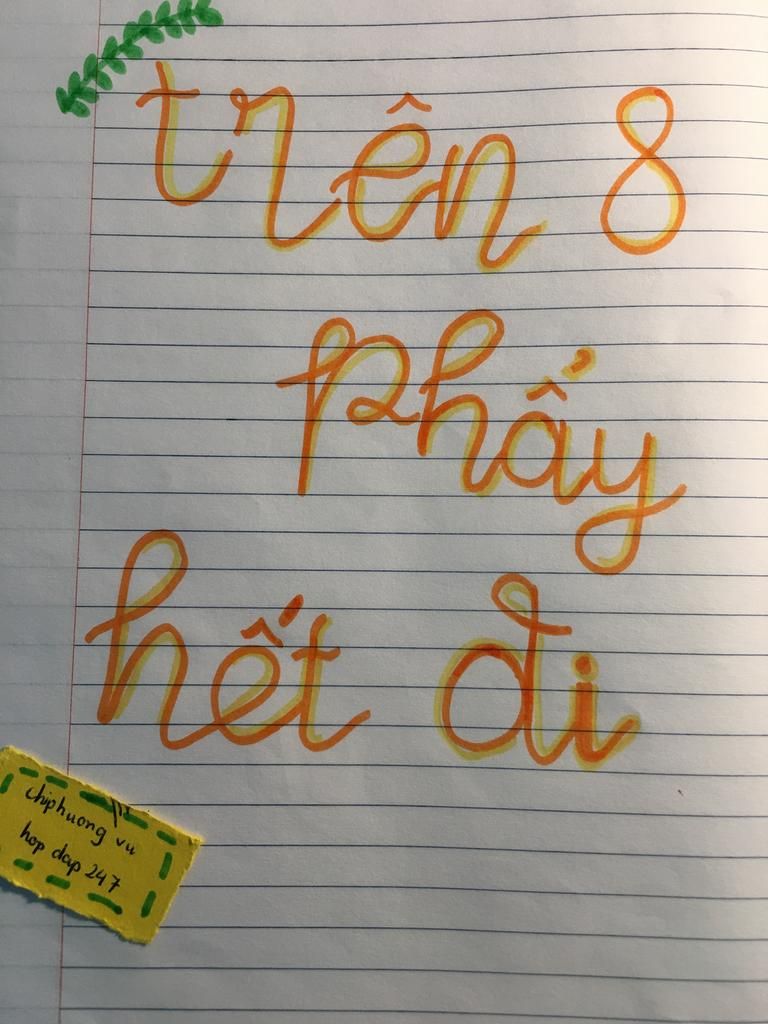 trên 8
phẩy
hết đi
chiphuong vu
hop dap 247